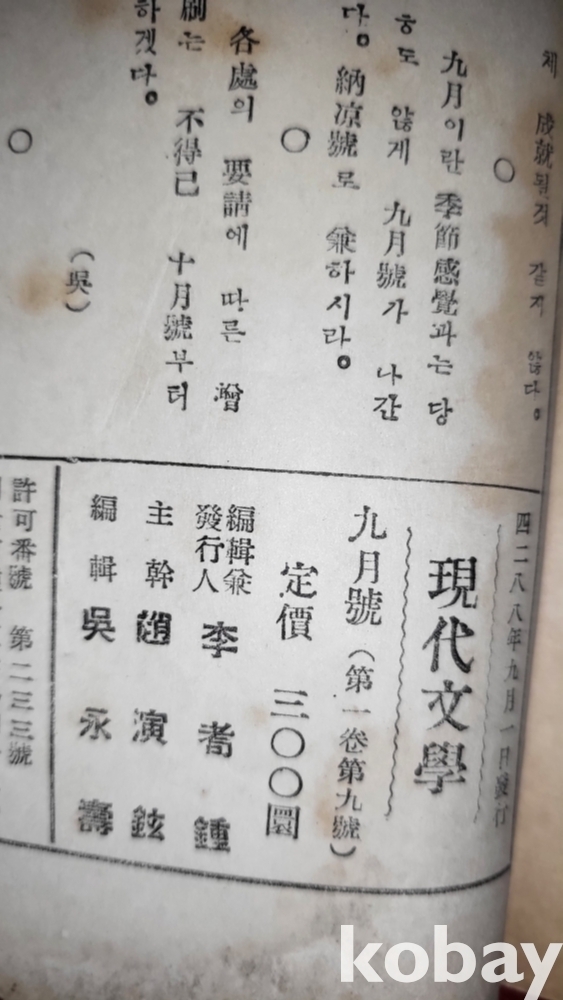 체 成就될것 같지 않다。
○
九月이란 季節感覺과는 당
ㅎ도 않게 九月號가 나간
다。 納凉號로 兼하시라。
○
各處의 要請에 따른 增
刷는 不得已 十月號부터
하겠다。
○
(吳)
四二八八年九月一日發行
現代文學
九月號(第一卷第九號)
定價 三〇〇圜
編輯兼
發行人 李耆鍾
主幹 趙演鉉
編輯 吳永壽
許可番號 第二三三號
kobay